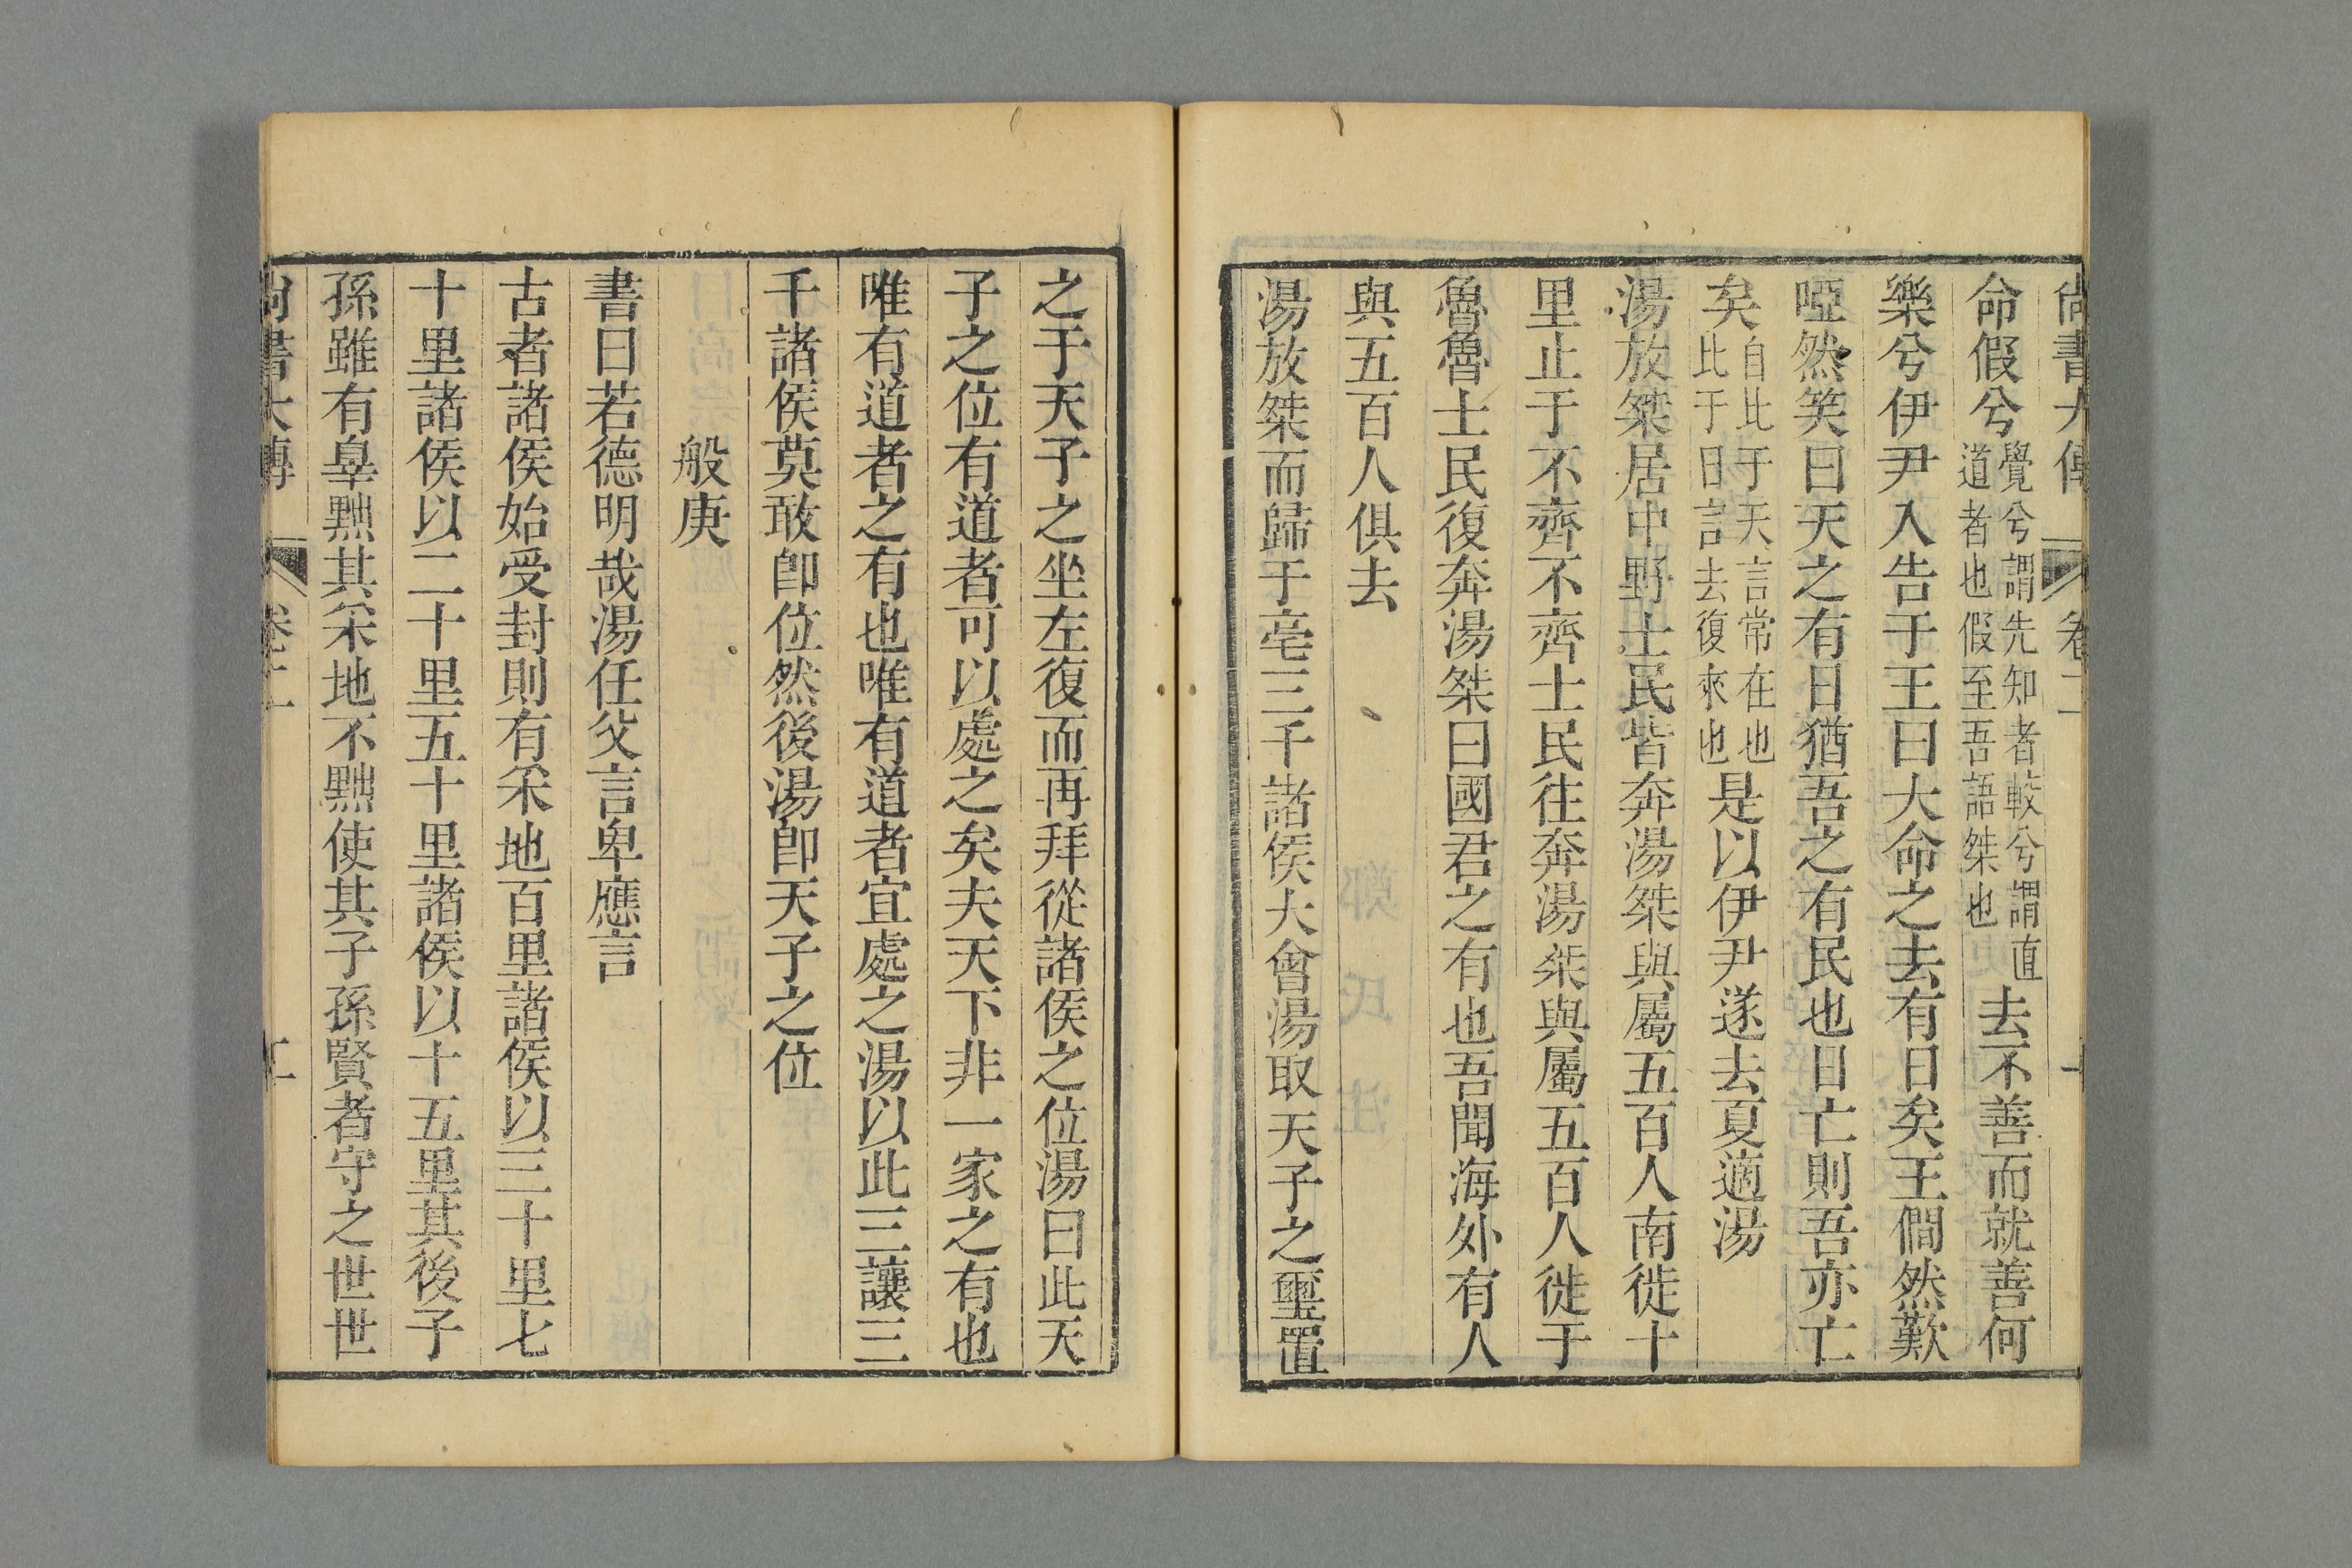 尚書大傳 卷二 十
命假兮覺兮謂先知者較兮謂直道者也假至吾語桀也去不善而就善何
樂兮伊尹入告于王曰大命之去有日矣王僩然歎
啞然笑曰天之有日猶吾之有民也日亡則吾亦亡
矣自比于天言常在也比于日言去復來也是以伊尹遂去夏適湯
湯放桀居中野士民皆奔湯桀與屬五百人南徙十
里止于不齊不齊士民往奔湯桀與屬五百人徙于
魯魯士民復奔湯桀曰國君之有也吾聞海外有人
與五百人俱去
湯放桀而歸于亳三千諸侯大會湯取天子之璽置
之于天子之坐左復而再拜從諸侯之位湯曰此天
子之位有道者可以處之矣夫天下非一家之有也
唯有道者之有也唯有道者宜處之湯以此三讓三
千諸侯莫敢卽位然後湯卽天子之位
般庚
書曰若德明哉湯任父言卑應言
古者諸侯始受封則有采地百里諸侯以三十里七
十里諸侯以二十里五十里諸侯以十五里其後子
孫雖有辠黜其采地不黜使其子孫賢者守之世世
尚書大傳 卷二